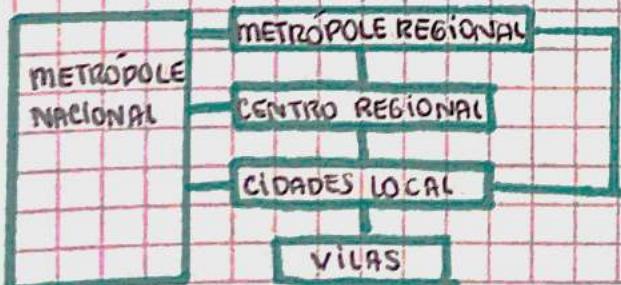 METRÓPOLE REGIONAL
METRÓPOLE
NACIONAL
CENTRO REGIONAL
CIDADES LOCAL
VILAS